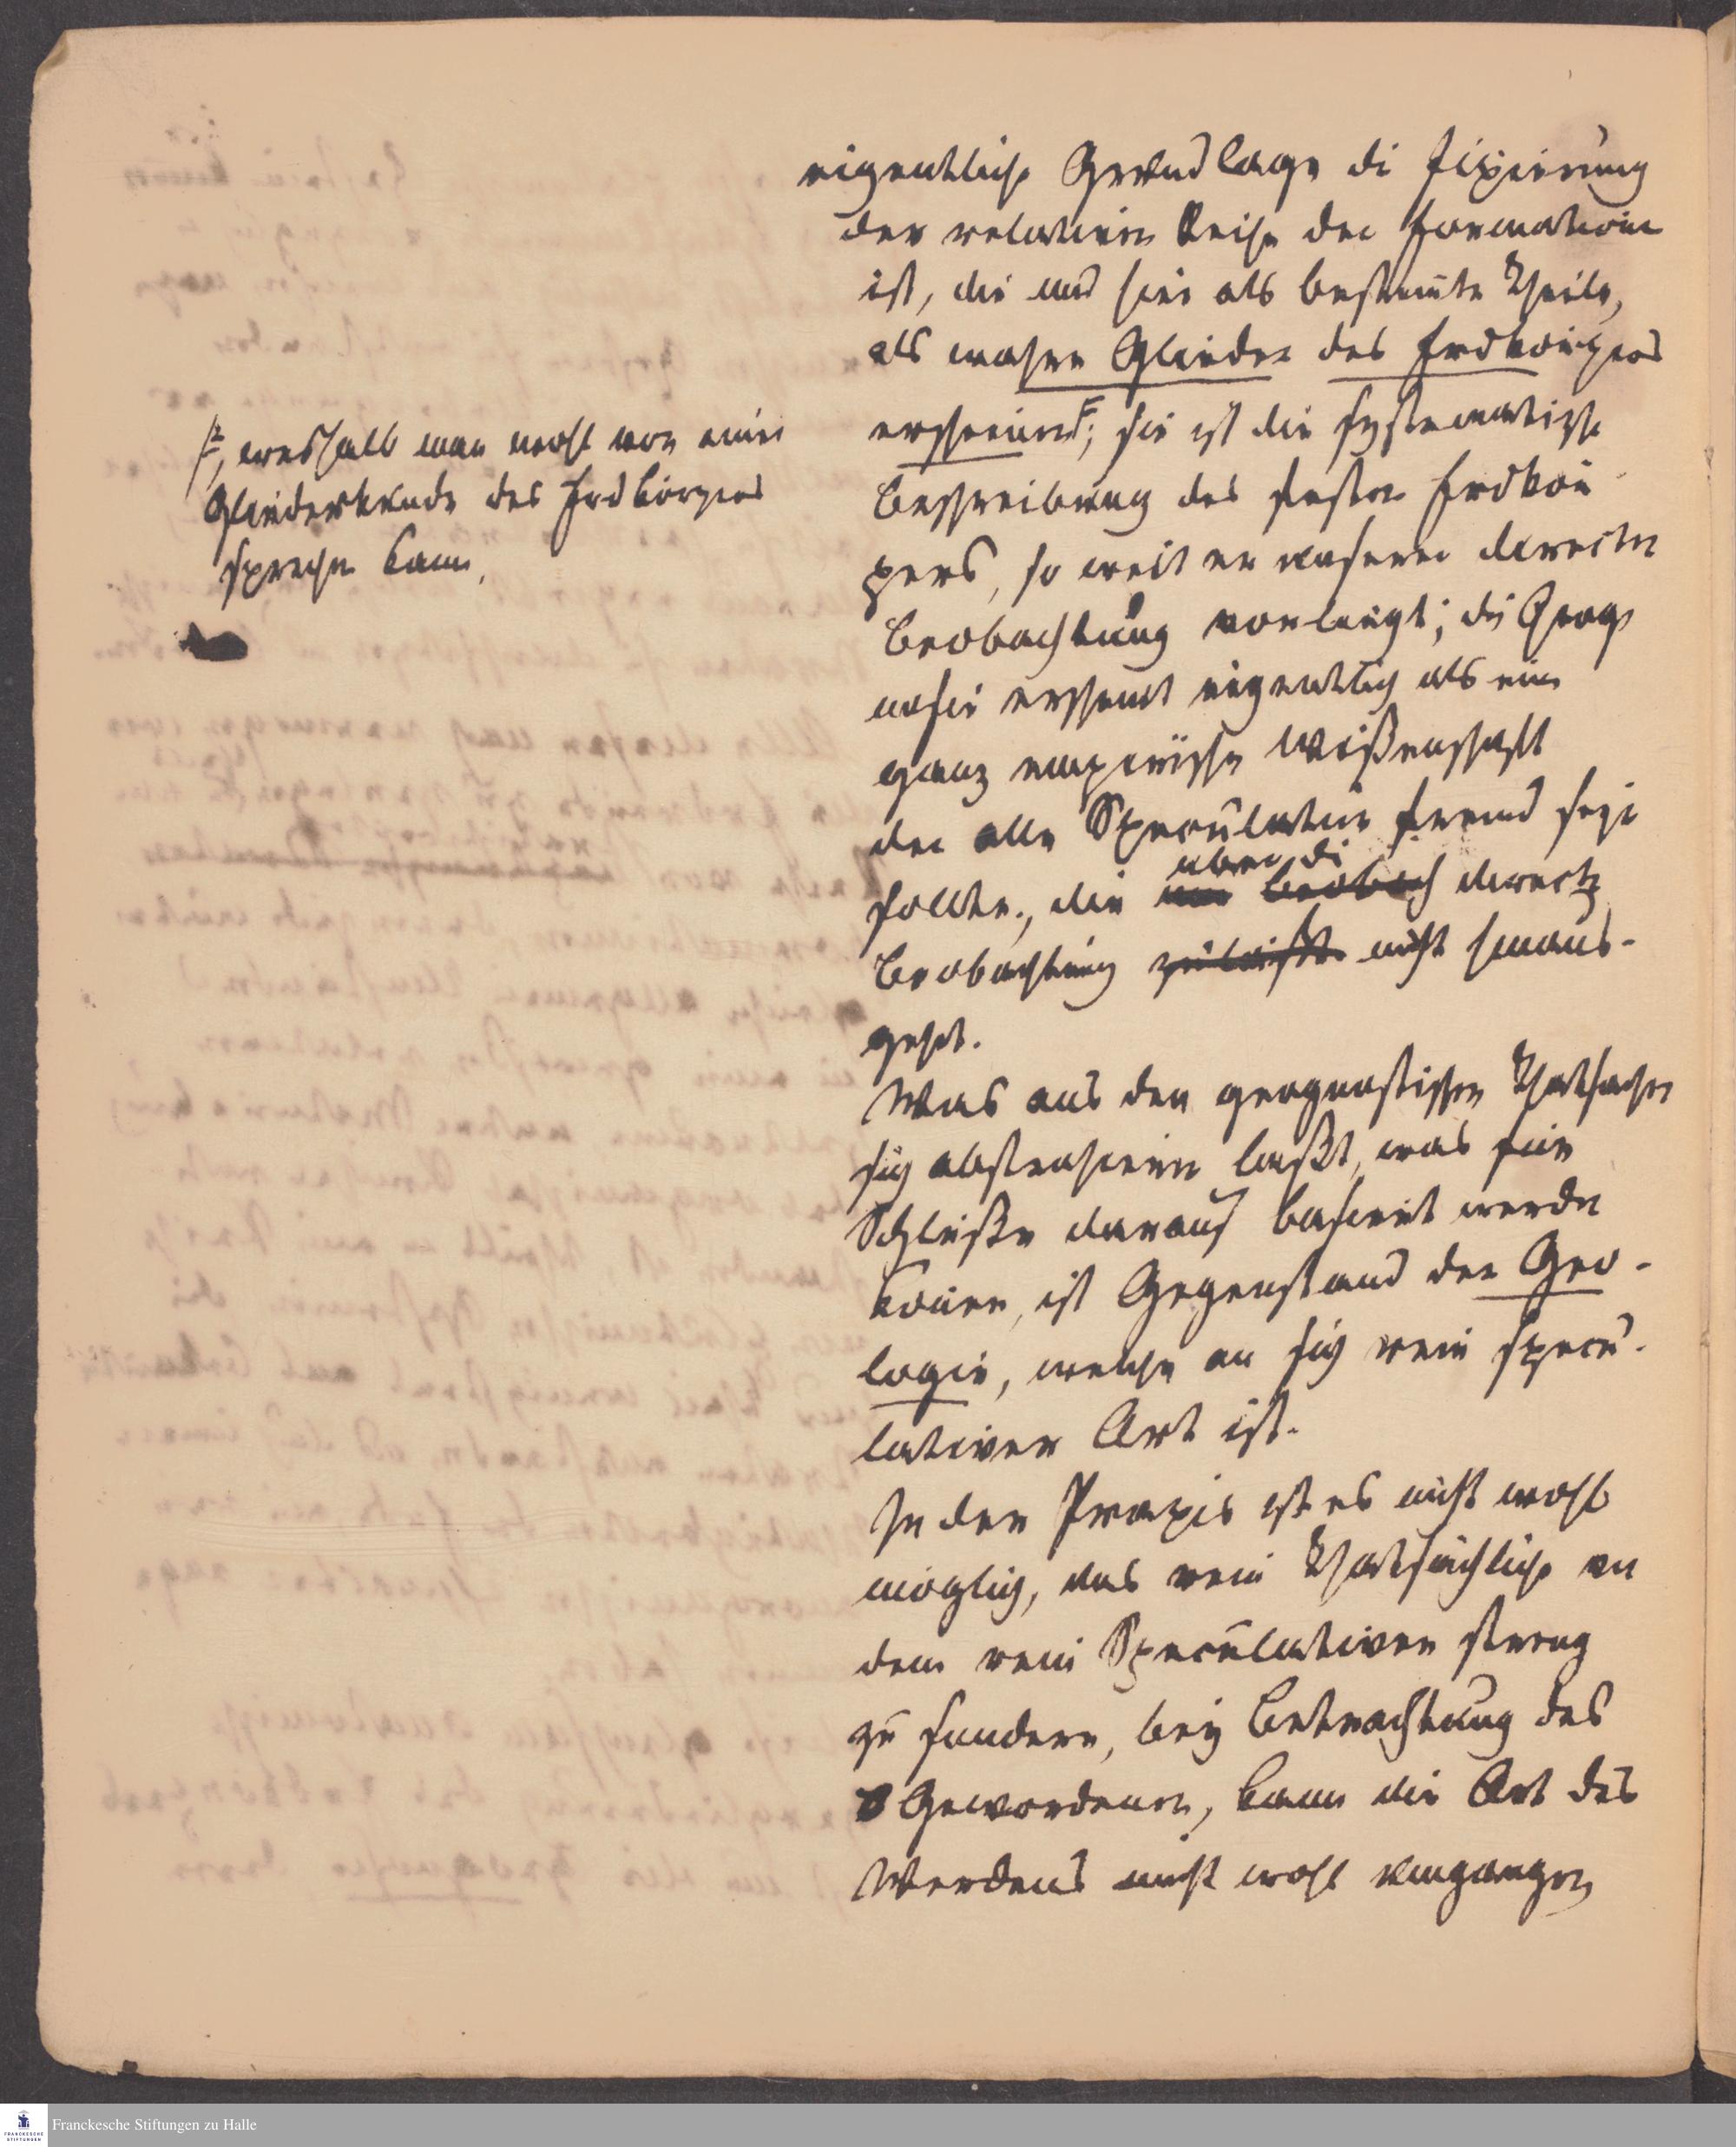 eigentliche Grundlage die Fixierung
der relativen Reihe der Formationen
ist, die uns hier als bestimte Theile,
als wahre Glieder des Erdkörpers
erscheinen F; sie ist die systematische
Beschreibung des festen Erdkör
pers, so weit er unserer directen
Beobachtung vorliegt; die Geog
nosie erscheint eigentlich als eine
ganz empirische Wißenschaft
der alle Speculation fremd seyn
sollte, die über die beobach directe
Beobachtung nicht hinaus-
geht.
Was aus den geognostischen Thatsachen
sich abstrahieren laßt, was für
Schlüße darauf basiert werden
könen, ist Gegenstand der Geo-
logie, welche an sich rein specu-
lativer Art ist.
In der Praxis ist es nicht wohl
möglich, das rein Thatsächliche von
dem rein Speculativen streng
zu sondern, bey Betrachtung des
Gewordenen, kann die Art des
Werdens nicht wohl umgangen
F, weshalb man wohl von einer
Gliederkunde des Erdkörpers
sprechen kann.
Franckesche Stiftungen zu Halle
FRANCKESCHE
STIFTUNGEN